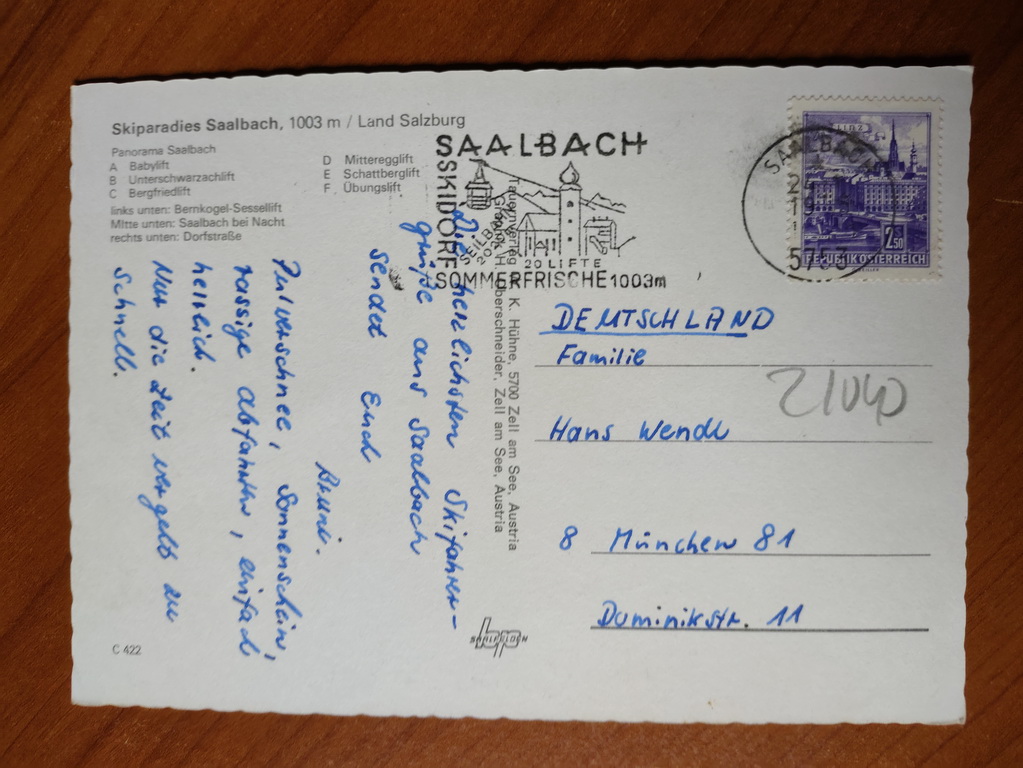 Skiparadies Saalbach, 1003 m / Land Salzburg
Panorama Saalbach
A Babylift
B Unterschwarzachlift
C Bergfriedlift
D Mittereggllift
E Schattberglift
F Übungslift
links unten: Bernkogel-Sessellift
Mitte unten: Saalbach bei Nacht
rechts unten: Dorfstraße
SAALBACH
SKIDORF
SEILBAHN
20 LIFTE
SOMMERFRISCHE 1003m
SAALBACH
5753
LINZ
2.50
REPUBLIK ÖSTERREICH
Die herzlichsten Skifahrer-
grüße aus Saalbach
sendet Euch
Bruni.
Pulverschnee, Sonnenschein,
rassige Abfahrten, einfach
herrlich.
Nur die Zeit vergeht zu
schnell.
K. Hühne, 5700 Zell am See, Austria
Zell am See, Austria
DEUTSCHLAND
Familie
Hans Wendl
8 München 81
Dominikstr. 11
21040
SAALFELDEN
C 422